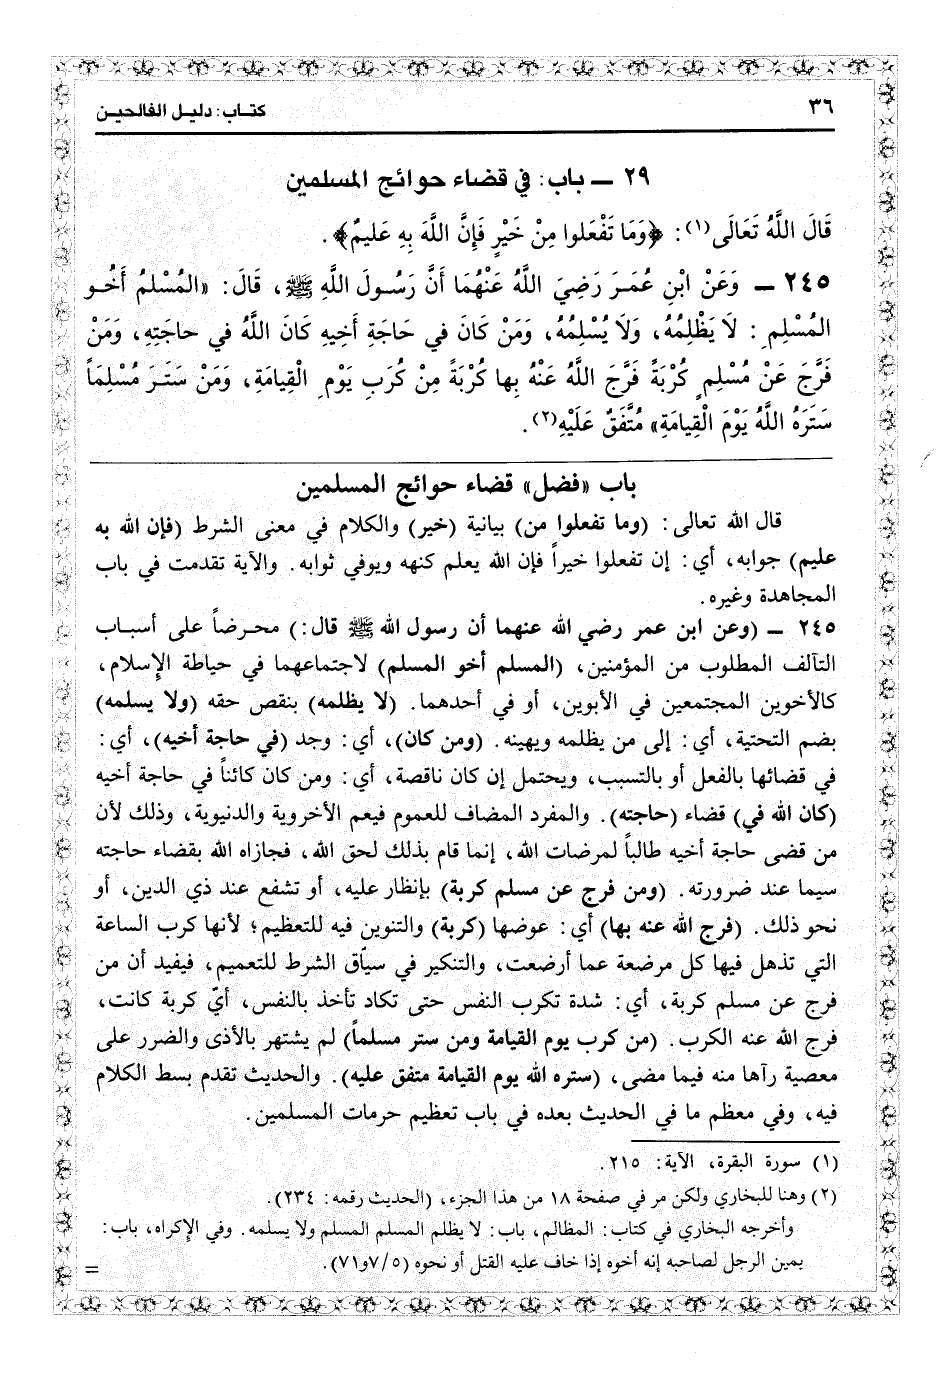 ٣٦
كتاب: دليل الفالحين
٢٩ ــ باب: في قضاء حوائج المسلمين
قَالَ اللَّهُ تَعَالَى(١): ﴿وَمَا تَفْعَلُوا مِنْ خَيْرٍ فَإِنَّ اللَّهَ بِهِ عَلِيمٌ﴾.
٢٤٥ ــ وَعَنْ ابْنِ عُمَرَ رَضِيَ اللَّهُ عَنْهُمَا أَنَّ رَسُولَ اللَّهِ ﷺ، قَالَ: «المُسْلِمُ أَخُو
المُسْلِمِ: لَا يَظْلِمُهُ، وَلَا يُسْلِمُهُ، وَمَنْ كَانَ في حَاجَةِ أَخِيهِ كَانَ اللَّهُ في حاجَتِهِ، وَمَنْ
فَرَّجَ عَنْ مُسْلِمٍ كُرْبَةً فَرَّجَ اللَّهُ عَنْهُ بِها كُرْبَةً مِنْ كُرَبِ يَوْمِ الْقِيامَةِ، وَمَنْ سَتَرَ مُسْلِمَاً
سَتَرَهُ اللَّهُ يَوْمَ الْقِيامَةِ» مُتَّفَقٌ عَلَيْهِ(٢).
باب «فضل» قضاء حوائج المسلمين
قال الله تعالى: (وما تفعلوا من) بيانية (خير) والكلام في معنى الشرط (فإن الله به
عليم) جوابه، أي: إن تفعلوا خيراً فإن الله يعلم كنهه ويوفي ثوابه. والآية تقدمت في باب
المجاهدة وغيره.
٢٤٥ ــ (وعن ابن عمر رضي الله عنهما أن رسول الله ﷺ قال:) محرضاً على أسباب
التآلف المطلوب من المؤمنين، (المسلم أخو المسلم) لاجتماعهما في حياطة الإسلام،
كالأخوين المجتمعين في الأبوين، أو في أحدهما. (لا يظلمه) بنقص حقه (ولا يسلمه)
بضم التحتية، أي: إلى من يظلمه ويهينه. (ومن كان)، أي: وجد (في حاجة أخيه)، أي:
في قضائها بالفعل أو بالتسبب، ويحتمل إن كان ناقصة، أي: ومن كان كائناً في حاجة أخيه
(كان الله في) قضاء (حاجته). والمفرد المضاف للعموم فيعم الأخروية والدنيوية، وذلك لأن
من قضى حاجة أخيه طالباً لمرضات الله، إنما قام بذلك لحق الله، فجازاه الله بقضاء حاجته
سيما عند ضرورته. (ومن فرج عن مسلم كربة) بإنظار عليه، أو تشفع عند ذي الدين، أو
نحو ذلك. (فرج الله عنه بها) أي: عوضها (كربة) والتنوين فيه للتعظيم؛ لأنها كرب الساعة
التي تذهل فيها كل مرضعة عما أرضعت، والتنكير في سياق الشرط للتعميم، فيفيد أن من
فرج عن مسلم كربة، أي: شدة تكرب النفس حتى تكاد تأخذ بالنفس، أيّ كربة كانت،
فرج الله عنه الكرب. (من كرب يوم القيامة ومن ستر مسلماً) لم يشتهر بالأذى والضرر على
معصية رآها منه فيما مضى، (ستره الله يوم القيامة متفق عليه). والحديث تقدم بسط الكلام
فيه، وفي معظم ما في الحديث بعده في باب تعظيم حرمات المسلمين.
(١) سورة البقرة، الآية: ٢١٥.
(٢) وهنا للبخاري ولكن مر في صفحة ١٨ من هذا الجزء، (الحديث رقمه: ٢٣٤).
وأخرجه البخاري في كتاب: المظالم، باب: لا يظلم المسلم المسلم ولا يسلمه. وفي الإكراه، باب:
يمين الرجل لصاحبه إنه أخوه إذا خاف عليه القتل أو نحوه (٥/٧و٧١).
=